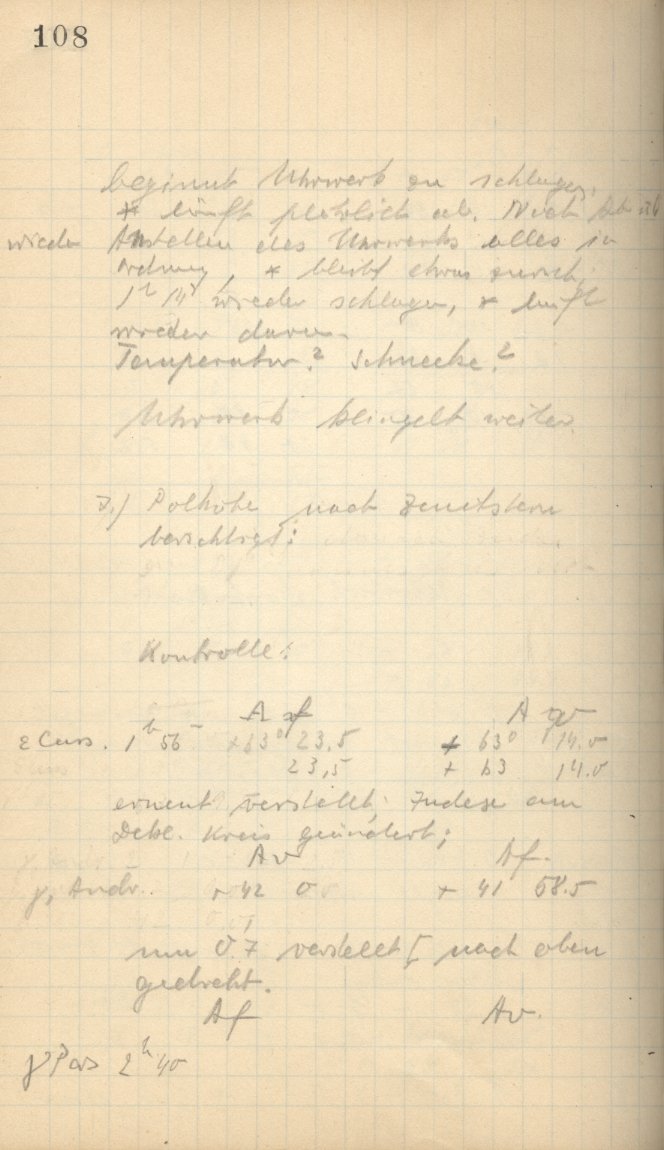 108
beginnt Uhrwerk zu schlagen,
* läuft plötzlich ab. Nach
wieder Anstellen des Uhrwerks alles in
Ordnung, * bleibt etwas zurück;
1h 14 wieder schlagen, * läuft
wieder davon.
Temperatur? Schnecke?
Uhrwerk klingelt weiter.
Polhöhe nach Zenitstern
Kontrolle:
A f A v
ε Cass. 1h 56 + 63° 23,5 + 63° 14.0
23,5 + 63 14.0
erneut verstellt; Indexe am
Dekl. Kreis geändert;
Av Af.
γ, Andr. + 42 0 + 41 58.5
um 0'.7 verstellt [ nach oben
gedreht.
Af Av.
γ Pers 2h 40